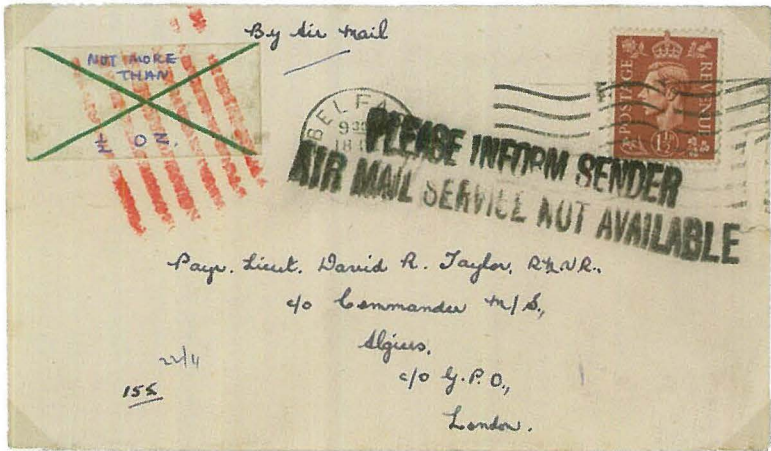 By Air Mail
NOT MORE
THAN
OZ.
POSTAGE
REVENUE
1½
BELFA
9 30
18
PLEASE INFORM SENDER
AIR MAIL SERVICE NOT AVAILABLE
Payr. Lieut. David R. Taylor, R.N.V.R.,
c/o Commander M/S,
Algiers,
c/o G.P.O.,
London.
22/4
155